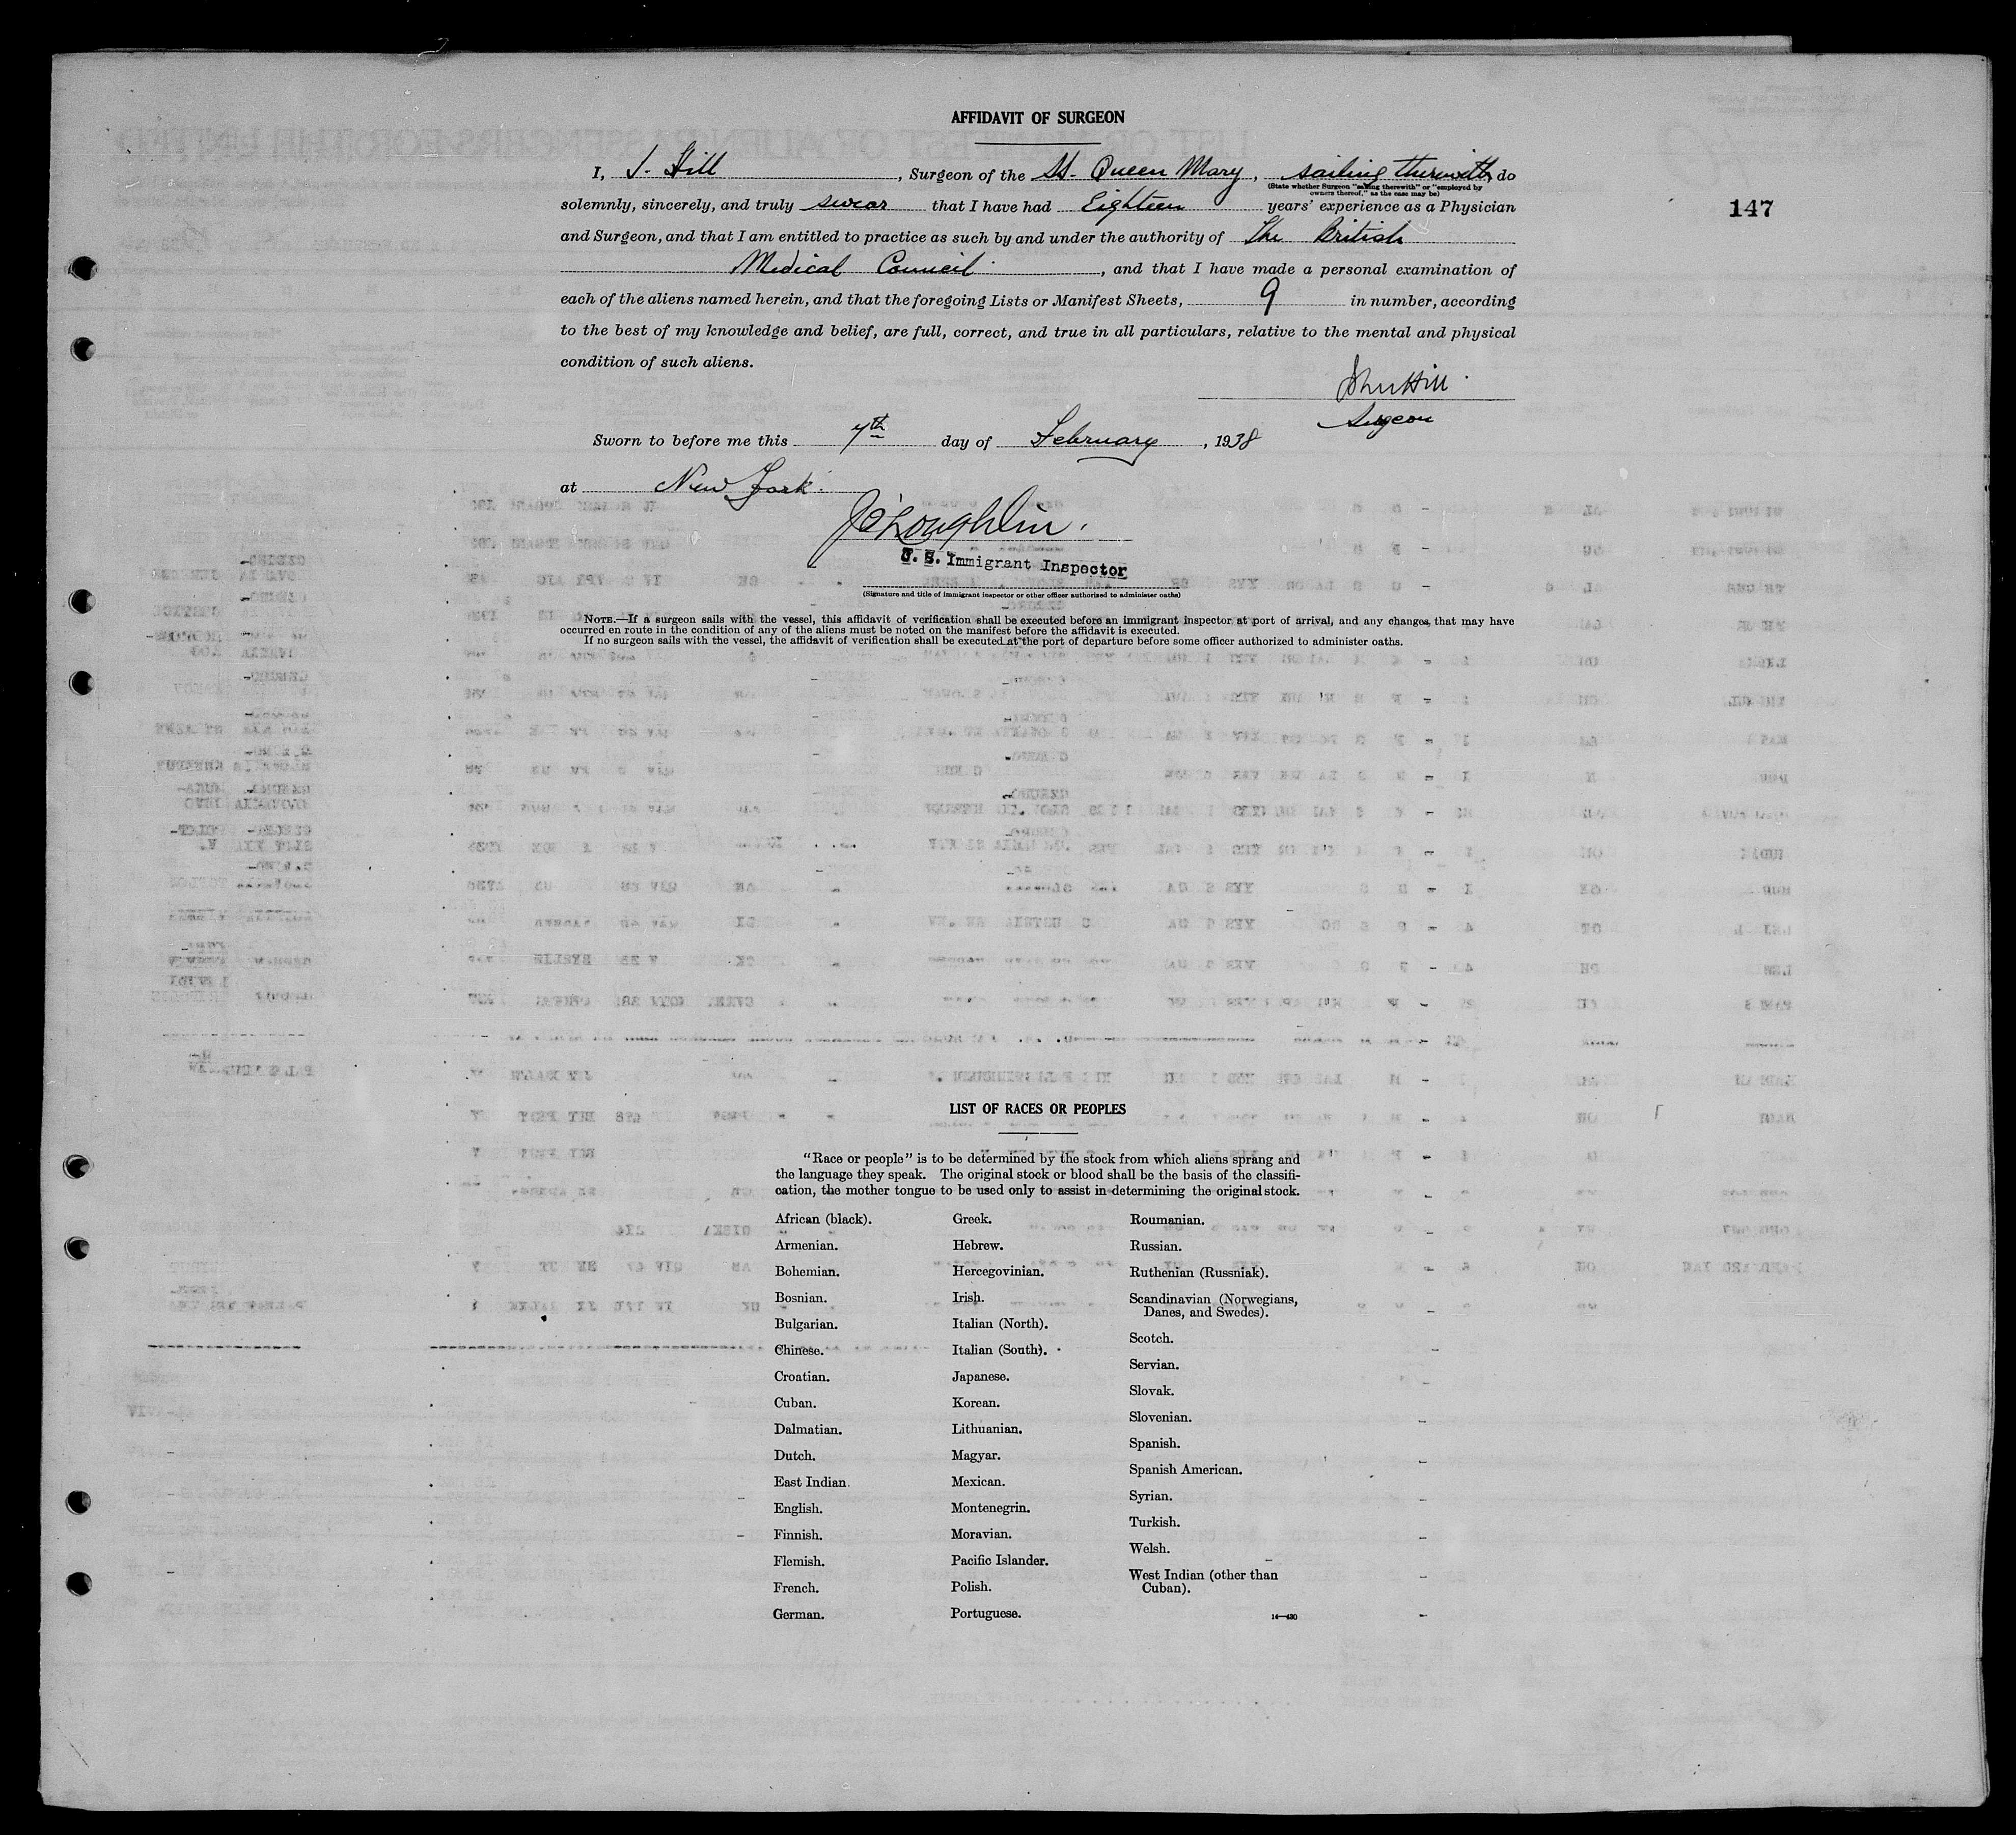 AFFIDAVIT OF SURGEON
I, J. Hill, Surgeon of the SS. Queen Mary, sailing therewith do
(State whether Surgeon "sailing therewith" or "employed by
owners thereof," as the case may be)
solemnly, sincerely, and truly swear that I have had Eighteen years' experience as a Physician
147
and Surgeon, and that I am entitled to practice as such by and under the authority of The British
Medical Council, and that I have made a personal examination of
each of the aliens named herein, and that the foregoing Lists or Manifest Sheets, 9 in number, according
to the best of my knowledge and belief, are full, correct, and true in all particulars, relative to the mental and physical
condition of such aliens.
John Hill
Surgeon
Sworn to before me this 7th day of February, 1938
at New York.
J O'Loughlin.
U. S. Immigrant Inspector
(Signature and title of immigrant inspector or other officer authorized to administer oaths)
NOTE.—If a surgeon sails with the vessel, this affidavit of verification shall be executed before an immigrant inspector at port of arrival, and any changes that may have
occurred en route in the condition of any of the aliens must be noted on the manifest before the affidavit is executed.
If no surgeon sails with the vessel, the affidavit of verification shall be executed at the port of departure before some officer authorized to administer oaths.
LIST OF RACES OR PEOPLES
"Race or people" is to be determined by the stock from which aliens sprang and
the language they speak. The original stock or blood shall be the basis of the classifi-
cation, the mother tongue to be used only to assist in determining the original stock.
African (black).
Armenian.
Bohemian.
Bosnian.
Bulgarian.
Chinese.
Croatian.
Cuban.
Dalmatian.
Dutch.
East Indian.
English.
Finnish.
Flemish.
French.
German.
Greek.
Hebrew.
Hercegovinian.
Irish.
Italian (North).
Italian (South).
Japanese.
Korean.
Lithuanian.
Magyar.
Mexican.
Montenegrin.
Moravian.
Pacific Islander.
Polish.
Portuguese.
Roumanian.
Russian.
Ruthenian (Russniak).
Scandinavian (Norwegians,
Danes, and Swedes).
Scotch.
Servian.
Slovak.
Slovenian.
Spanish.
Spanish American.
Syrian.
Turkish.
Welsh.
West Indian (other than
Cuban).
14—430